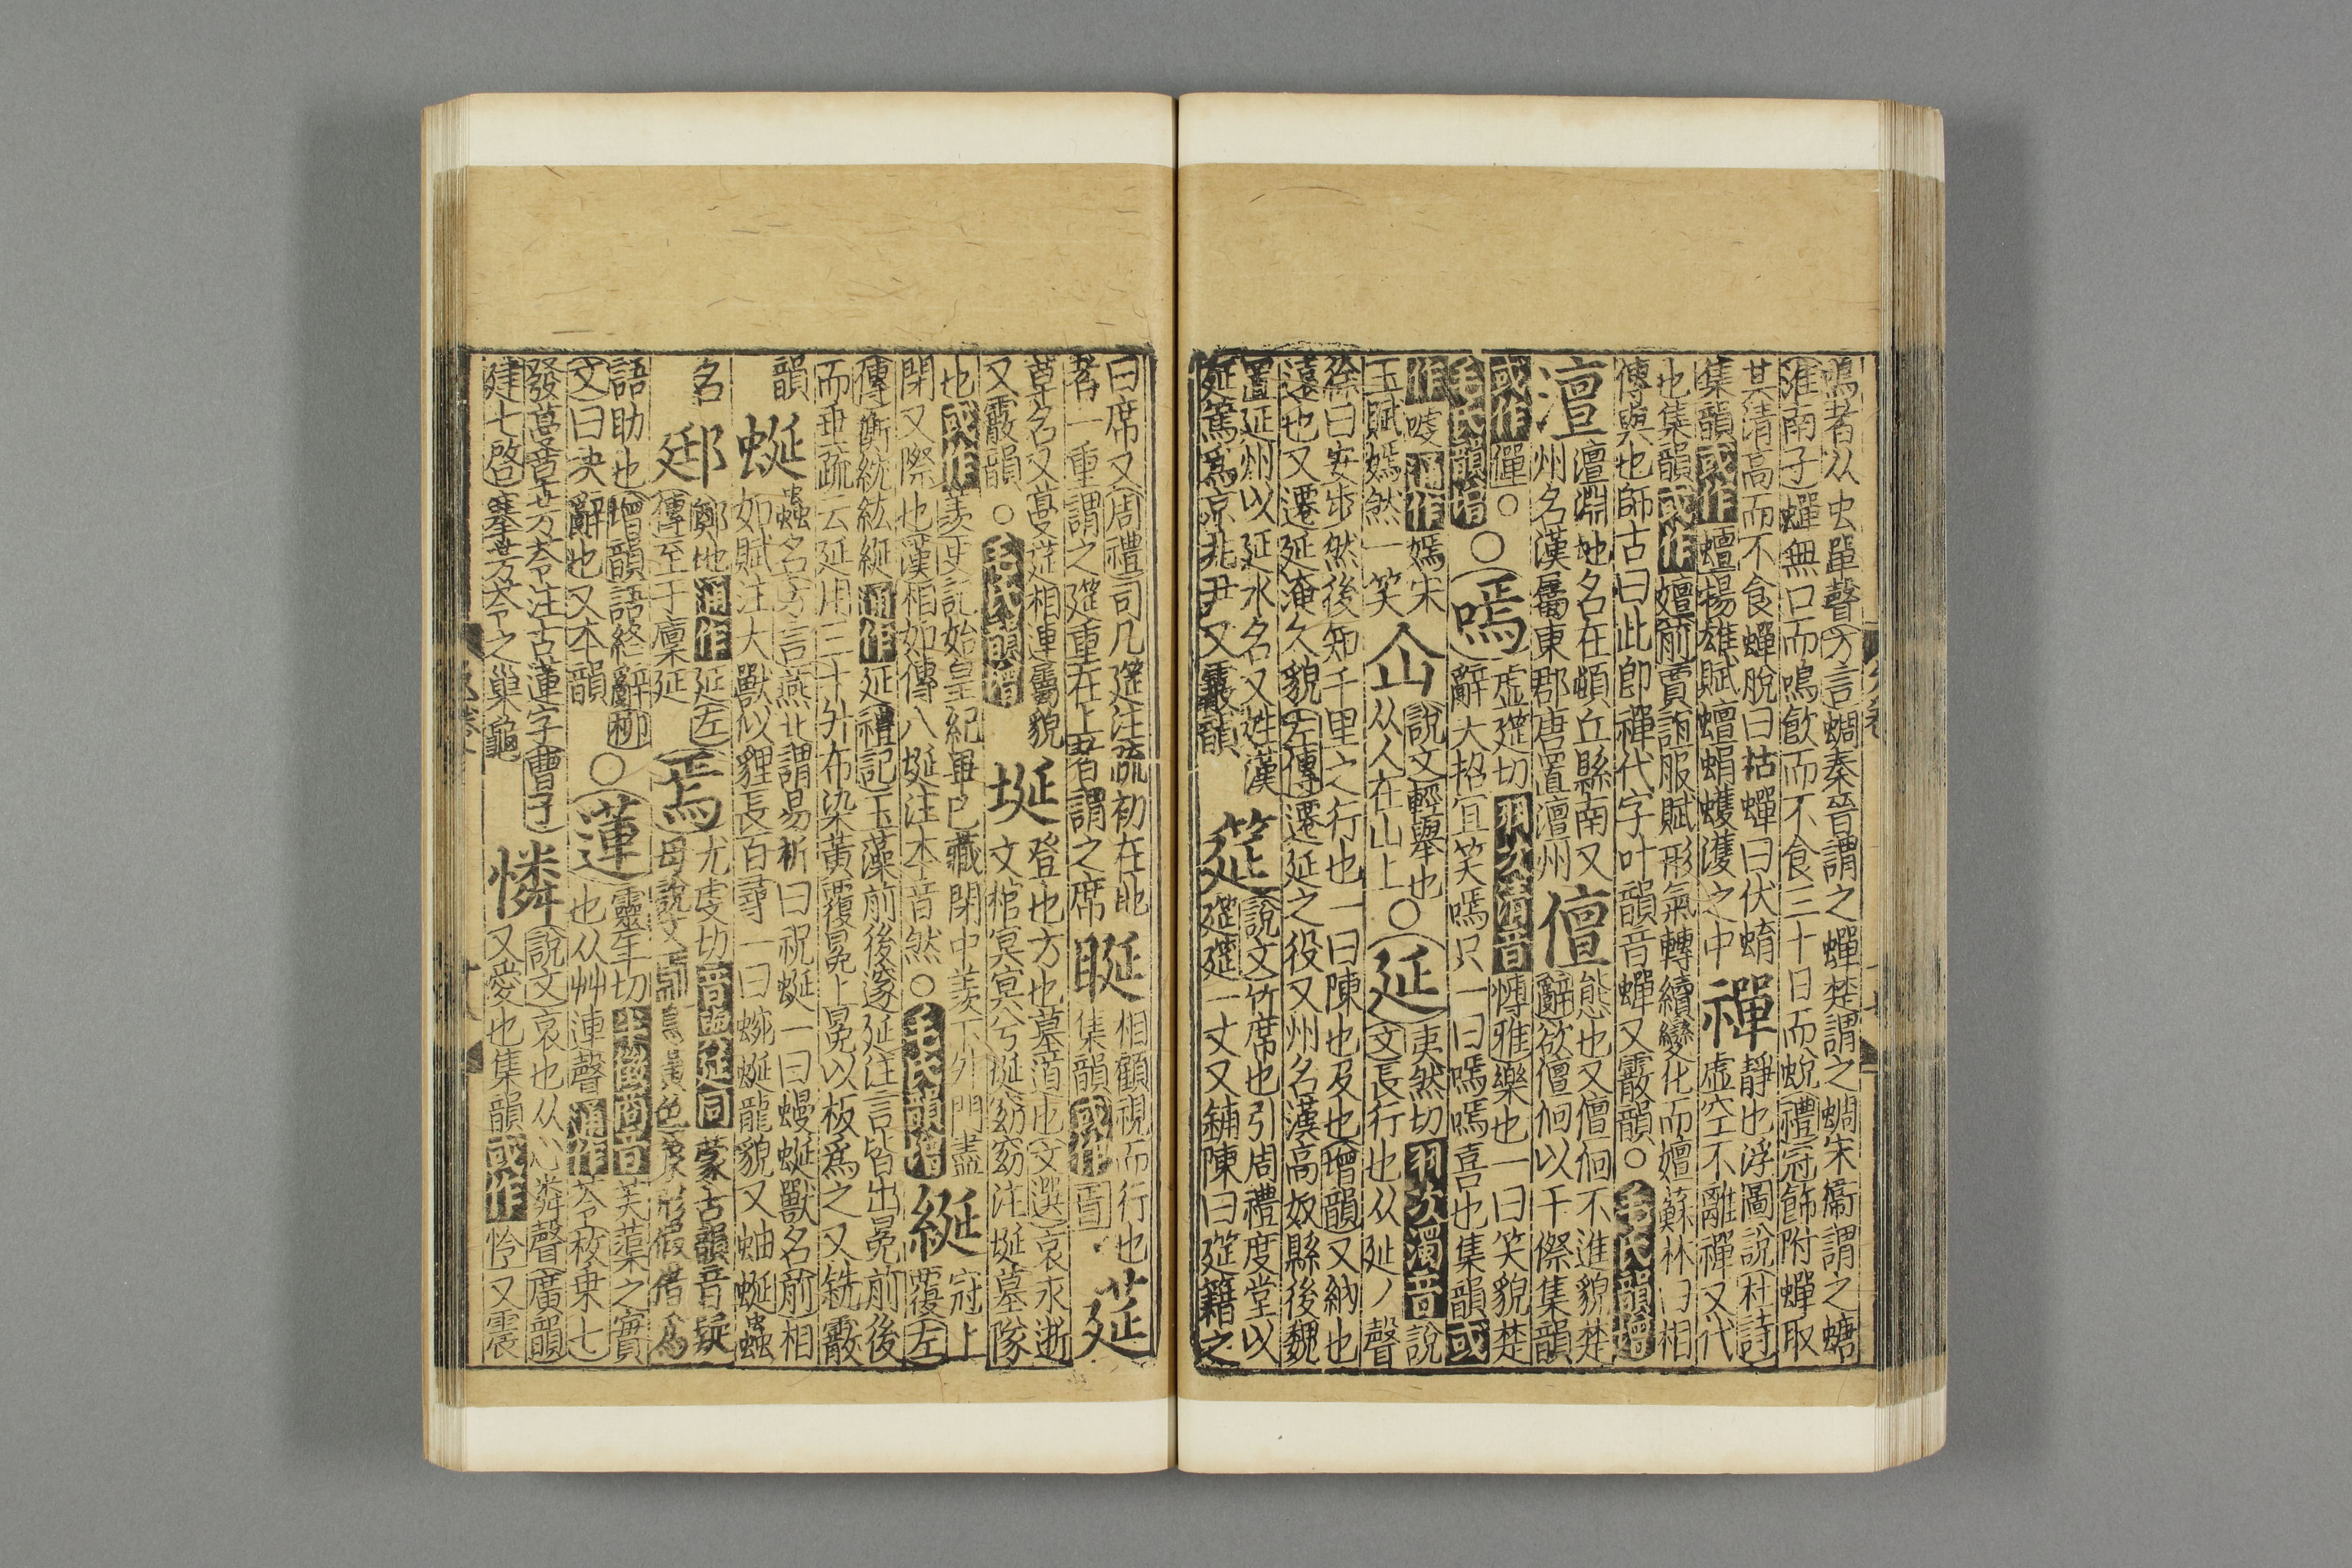 鳴者从虫單聲方言蜩秦晉謂之蟬楚謂之蜩宋衞謂之螗
淮南子蟬無口而鳴飮而不食三十日而蛻禮冠飾附蟬取
其清高而不食蟬脫曰枯蟬曰伏蜟
集韻或作蟺揚雄賦蟺蜎蠖濩之中
禪
靜也浮圖說杜詩
虛空不離禪又代
也集韻或作嬗前賈誼服賦形氣轉續變化而嬗蘇林曰相
傳與也師古曰此卽禪代字叶韻音蟬又霰韻○毛氏韻增
澶
澶淵地名在頓丘縣南又
州名漢屬東郡唐置澶州
儃
態也又儃佪不進貌楚
辭欲儃佪以干傺集韻
或作僤○
毛氏韻增
○嘕
虛延切羽次清音慱雅樂也一曰笑貌楚
辭大招宜笑嘕只一曰嘕嘕喜也集韻或
作唛通作嫣宋
玉賦嫣然一笑
仚
說文輕舉也
从人在山上
○延
夷然切羽次濁音說
文長行也从㢟丿聲
徐曰安步然後知千里之行也一曰陳也及也增韻又納也
遠也又遷延淹久貌左傳遷延之役又州名漢高奴縣後魏
置延州以延水名又姓漢
延篤爲京兆尹又霰韻
筵
說文竹席也引周禮度堂以
筵筵一丈又鋪陳曰筵籍之
曰席又周禮司几筵注疏初在地
者一重謂之筵重在上者謂之席
䀽
相顧視而行也
集韻或作
莚
草名又蔓莚相連屬貌
又霰韻○毛氏韻增
埏
登也方也墓道也文選哀永逝
文棺冥冥兮埏窈窈注埏墓隊
也或作羨史記始皇紀畢已藏閉中羨下外門盡
閉又際也漢相如傳八埏注本音然○毛氏韻增
綖
冠上
覆左
傳衡紞紘綖通作延禮記玉藻前後邃延注言皆出冕前後
而垂疏云延用三十升布染黃覆冕上冕以板爲之又銑霰
韻
蜒
蟲名方言燕北謂易析曰祝蜒一曰蟃蜒獸名前相
如賦注大獸似貍長百尋一曰蜿蜒龍貌又蚰蜒蟲
名
郔
鄭地通作延左
傳至于廩延
焉
尤虔切音與延同蒙古韻音疑
母說文焉鳥黃色象形假借爲
語助也增韻語終辭柳
文曰決辭也又本韻
○蓮
靈年切半徵商音芙蕖之實
也从艸連聲通作苓枚乗七
發蔓草芳苓注古蓮字曹子
建七啓搴芳苓之巢龜
憐
說文哀也从心粦聲廣韻
又愛也集韻或作怜又震